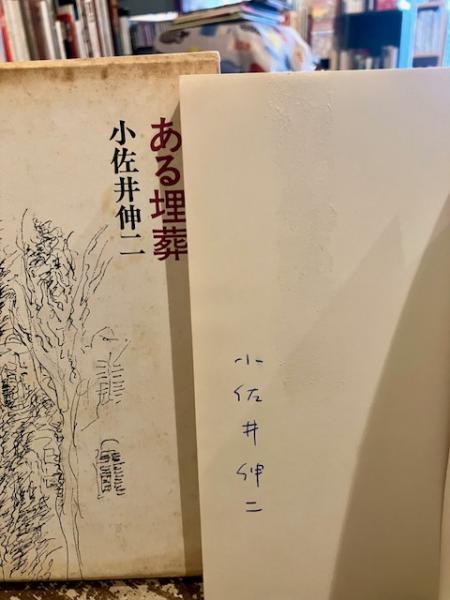 ある埋葬
小佐井伸二
小佐井伸二